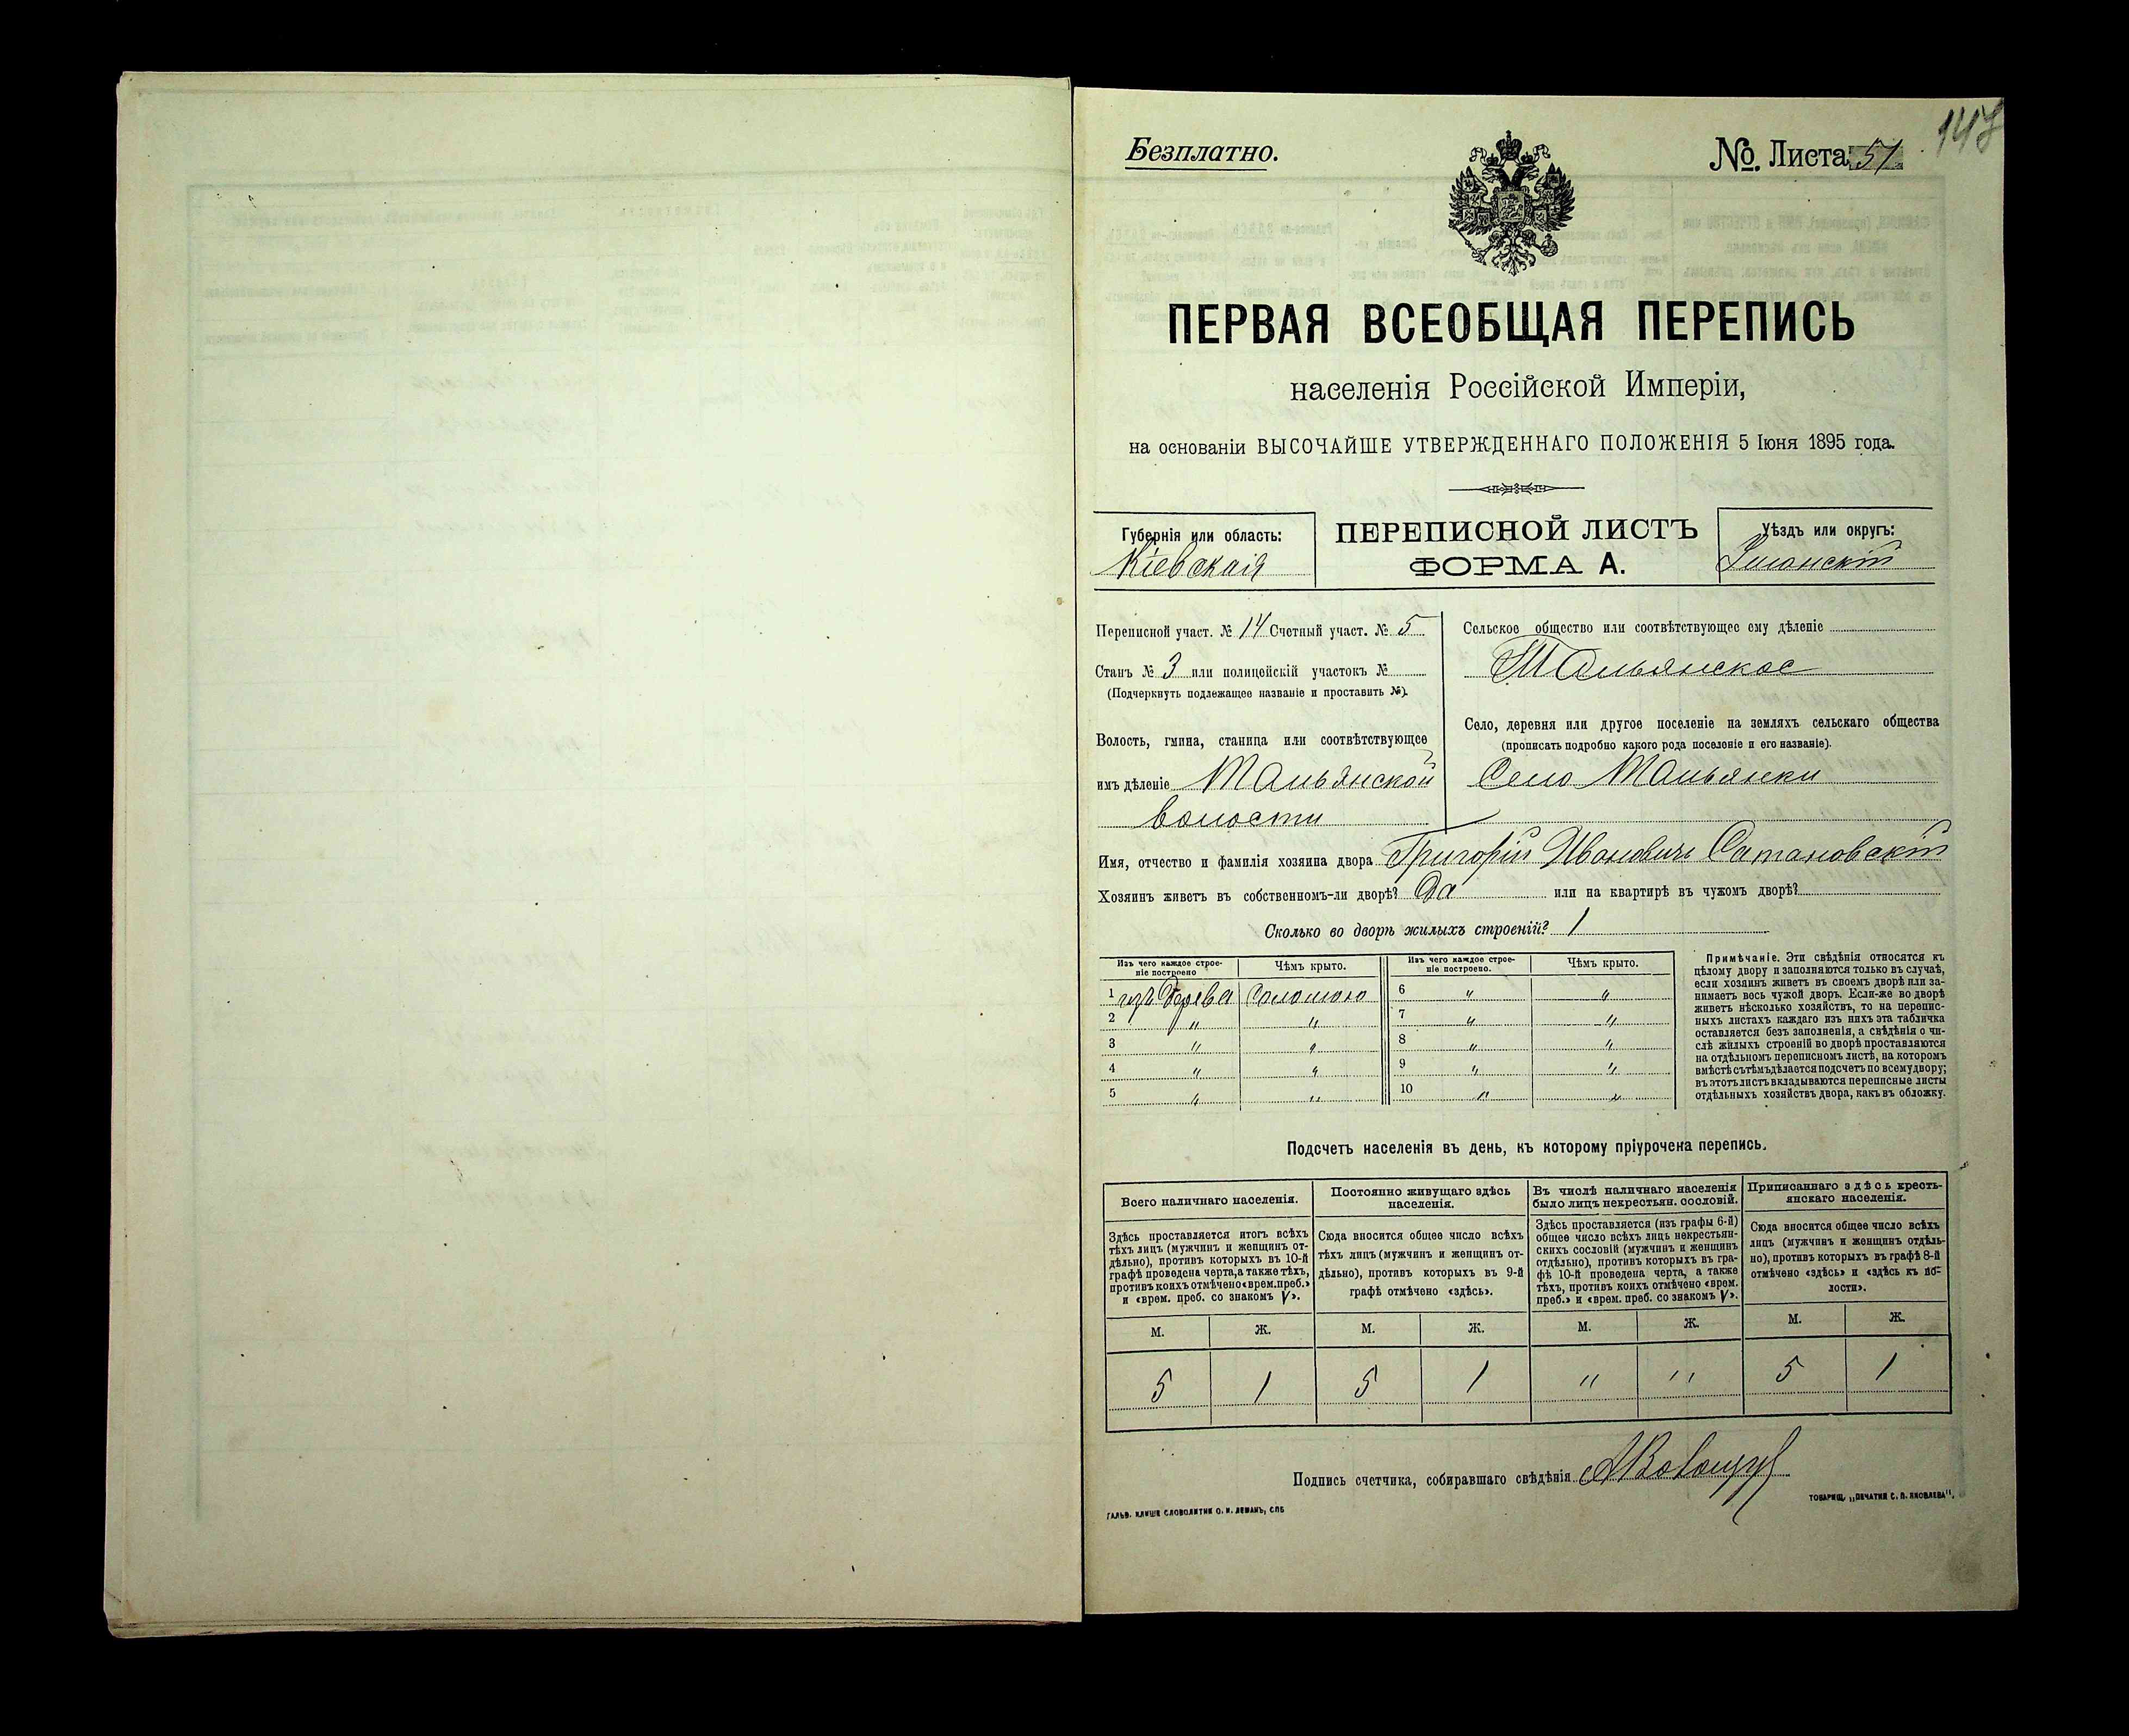 Безплатно.
№ Листа 51
147
ПЕРВАЯ ВСЕОБЩАЯ ПЕРЕПИСЬ
населенія Россійской Имперіи,
на основаніи ВЫСОЧАЙШЕ УТВЕРЖДЕННАГО ПОЛОЖЕНІЯ 5 Іюня 1895 года.
Губернія или область:
Кіевская
ПЕРЕПИСНОЙ ЛИСТЪ
ФОРМА А.
Уѣздъ или округъ:
Уманскій
Переписной участ. № 14 Счетный участ. № 5
Станъ № 3 или полицейскій участокъ №
(Подчеркнуть подлежащее названіе и проставить №).
Волость, гмина, станица или соотвѣтствующее
имъ дѣленіе Тальянской
волости
Сельское общество или соотвѣтствующее ему дѣленіе
Тальянское
Село, деревня или другое поселеніе на земляхъ сельскаго общества
(прописать подробно какого рода поселеніе и его названіе).
Село Тальянки
Имя, отчество и фамилія хозяина двора Григорій Ивановичъ Сатановскій
Хозяинъ живетъ въ собственномъ-ли дворѣ? Да или на квартирѣ въ чужомъ дворѣ?
Сколько во дворѣ жилыхъ строеній? 1
Изъ чего каждое строе-
ніе построено
Чѣмъ крыто.
Изъ чего каждое строе-
ніе построено.
Чѣмъ крыто.
1 изъ дерева Соломою 6 " "
2 " " 7 " "
3 " " 8 " "
4 " " 9 " "
5 " " 10 " "
Примѣчаніе. Эти свѣдѣнія относятся къ
цѣлому двору и заполняются только въ случаѣ,
если хозяинъ живетъ въ своемъ дворѣ или за-
нимаетъ весь чужой дворъ. Если-же во дворѣ
живетъ нѣсколько хозяйствъ, то на перепис-
ныхъ листахъ каждаго изъ нихъ эта табличка
оставляется безъ заполненія, а свѣдѣнія о чи-
слѣ жилыхъ строеній во дворѣ проставляются
на отдѣльномъ переписномъ листѣ, на которомъ
вмѣстѣ съ тѣмъ дѣлается подсчетъ по всему двору;
въ этотъ листъ вкладываются переписные листы
отдѣльныхъ хозяйствъ двора, какъ въ обложку.
Подсчетъ населенія въ день, къ которому пріурочена перепись.
Всего наличнаго населенія.
Здѣсь проставляется итогъ всѣхъ
тѣхъ лицъ (мужчинъ и женщинъ от-
дѣльно), противъ которыхъ въ 10-й
графѣ проведена черта, а также тѣхъ,
противъ коихъ отмѣчено «врем. преб.»
и «врем. преб. со знакомъ V».
Постоянно живущаго здѣсь
населенія.
Сюда вносится общее число всѣхъ
тѣхъ лицъ (мужчинъ и женщинъ от-
дѣльно), противъ которыхъ въ 9-й
графѣ отмѣчено «здѣсь».
Въ числѣ наличнаго населенія
было лицъ некрестьян. сословій.
Здѣсь проставляется (изъ графы 6-й)
общее число всѣхъ лицъ некрестьян-
скихъ сословій (мужчинъ и женщинъ
отдѣльно), противъ которыхъ въ гра-
фѣ 10-й проведена черта, а также
тѣхъ, противъ коихъ отмѣчено «врем.
преб.» и «врем. преб. со знакомъ V».
Приписаннаго здѣсь кресть-
янскаго населенія.
Сюда вносится общее число всѣхъ
лицъ (мужчинъ и женщинъ отдѣль-
но), противъ которыхъ въ графѣ 8-й
отмѣчено «здѣсь» и «здѣсь къ во-
лости».
М. Ж. М. Ж. М. Ж. М. Ж.
5 1 5 1 " " 5 1
Подпись счетчика, собиравшаго свѣдѣнія
ГАЛЬВ. КЛИШЕ СЛОВОЛИТНИ О. И. ЛЕМАНЪ, СПБ
ТОВАРИЩ. „ПЕЧАТНИ С. П. ЯКОВЛЕВА“.